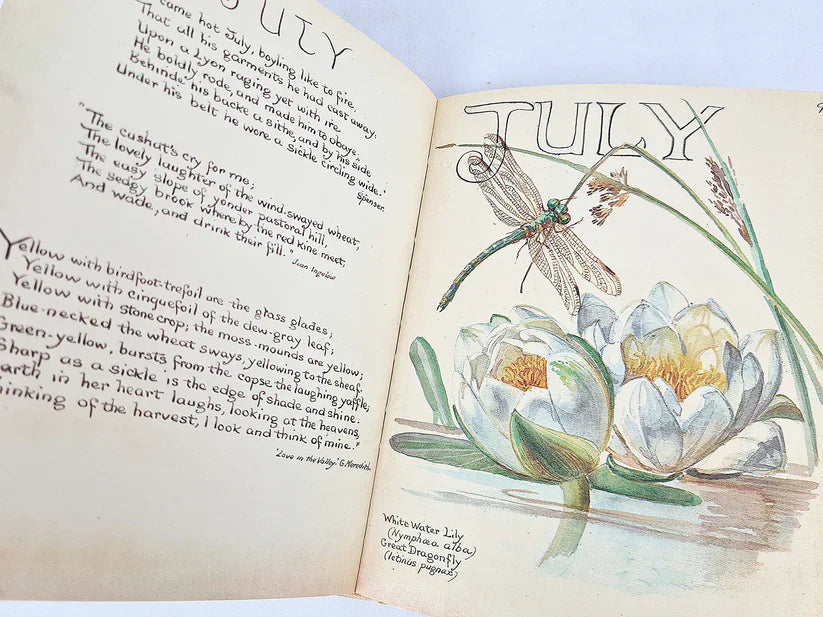 JULY
came hot July, boyling like to fire,
That all his garments he had cast away,
Upon a Lyon raging yet with ire
He boldly rode, and made him to obaye.
Behinde his backe a sithe, and by his side
Under his belt he wore a sickle circling wide."
Spenser.
"The cushat's cry for me;
The lovely laughter of the wind-swayed wheat,
The easy slope of yonder pastoral hill,
The sedgy brook where by the red kine meet,
And wade, and drink their fill."
Jean Ingelow
Yellow with birdfoot-trefoil are the glass glades;
Yellow with cinquefoil of the dew-gray leaf;
Yellow with stonecrop; the moss-mounds are yellow;
Blue-necked the wheat sways, yellowing to the sheaf.
Green-yellow, bursts from the copse the laughing yaffle;
Sharp as a sickle is the edge of shade and shine.
arth in her heart laughs, looking at the heavens,
hinking of the harvest, I look and think of mine."
'Love in the Valley.' G. Meredith.
JULY
White Water Lily
(Nymphœa alba)
Great Dragonfly
(Ictinus pugnax)